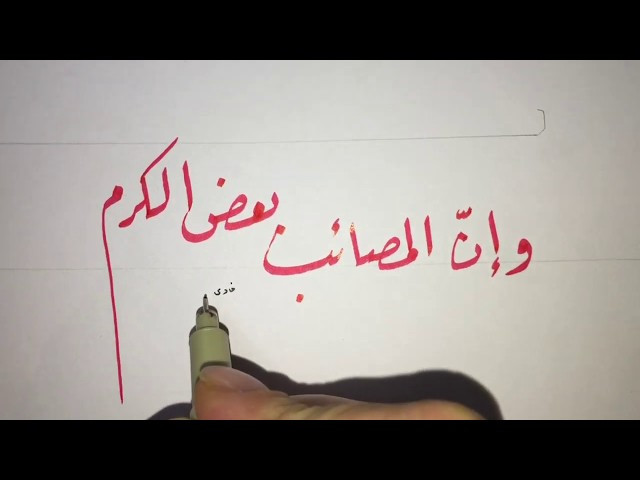 وإنّ المصائب بعض الكرم